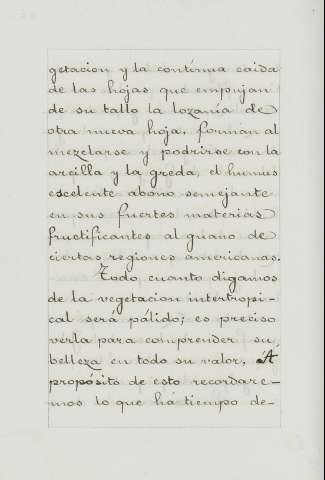 getacion y la contínua caida
de las hojas que empujan
de su tallo la lozanía de
otra nueva hoja, forman al
mezclarse y podrirse con la
arcilla y la greda, el humus
escelente abono semejante
en sus fuertes materias
fructificantes al guano de
ciertas regiones americanas.
Todo cuanto digamos
de la vegetacion intertropi-
cal será pálido; es preciso
verla para comprender su
belleza en todo su valor. Á
propósito de esto recordare-
mos lo que há tiempo de-